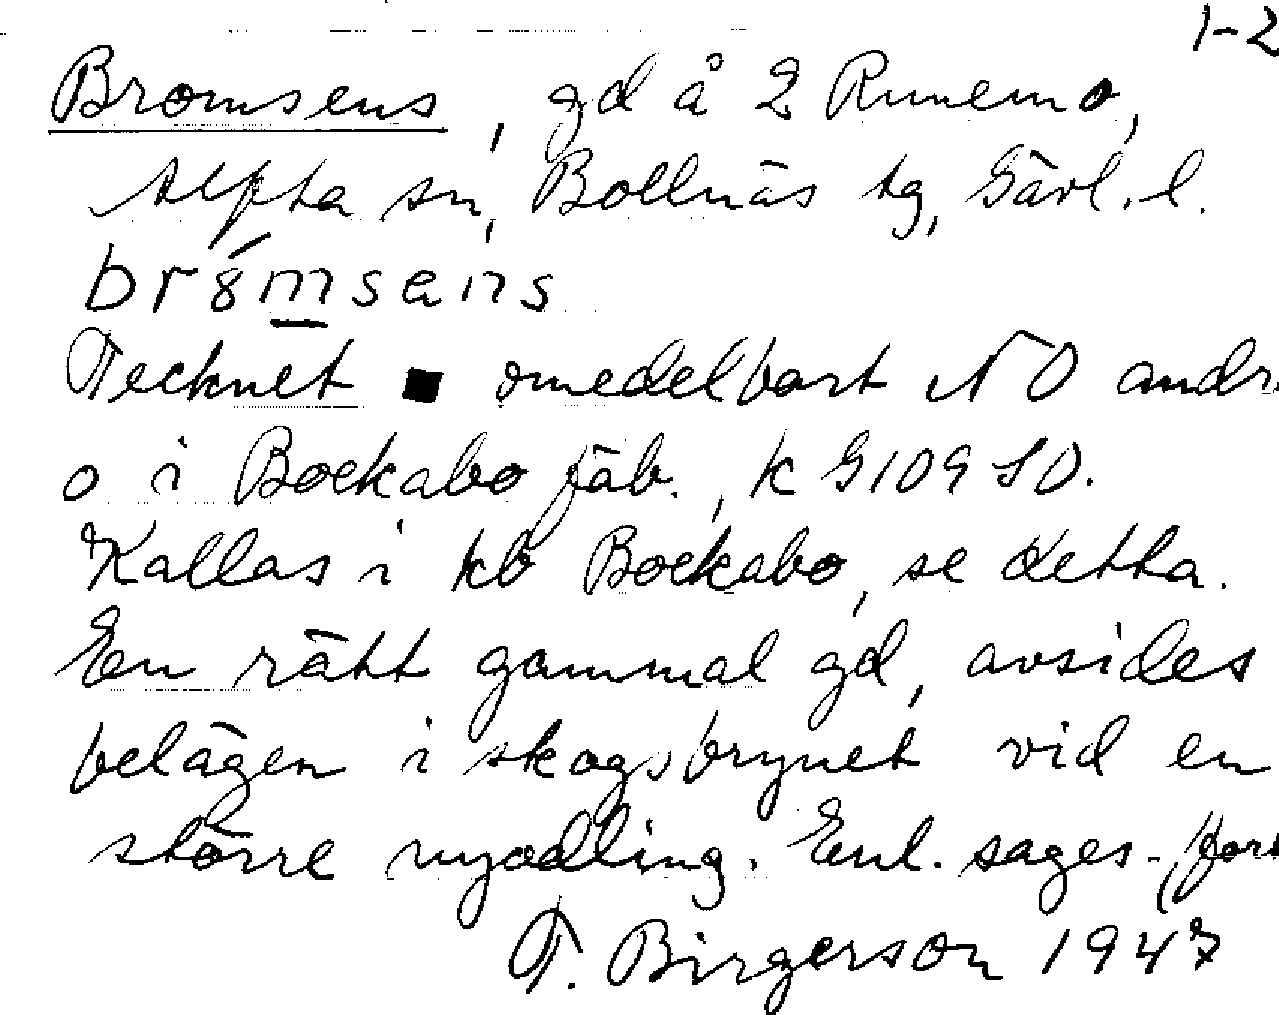 1-2
Bromsens, gd å 2 Runemo,
Alfta sn, Bollnäs tg, Gävl. l.
brȣ́msens
Tecknet ■ omedelbart NO andr.
o i Bockabo fäb., k G109 SO.
Kallas i kb Bockabo, se detta.
En rätt gammal gd, avsides
belägen i skogsbrynet vid en
större nyodling. Enl. sages- (forts
T. Birgerson 1947